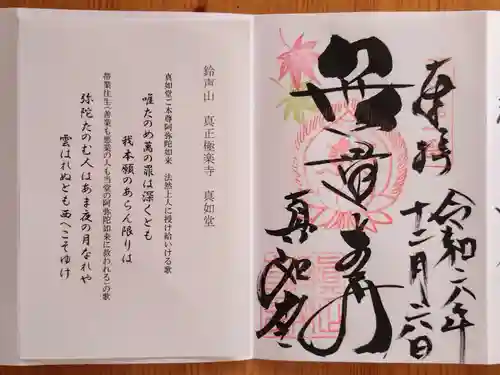 奉拝
令和二年
十二月六日
無量寿
真如堂
鈴声山 真正極楽寺 真如堂
真如堂ご本尊阿弥陀如来 法然上人に授け給いける歌
唯たのめ萬の罪は深くとも
我本願のあらん限りは
帯業往生(善業も悪業の人も当堂の阿弥陀如来に救われる)の歌
弥陀たのむ人はあま夜の月なれや
雲はれぬとも西へこそゆけ